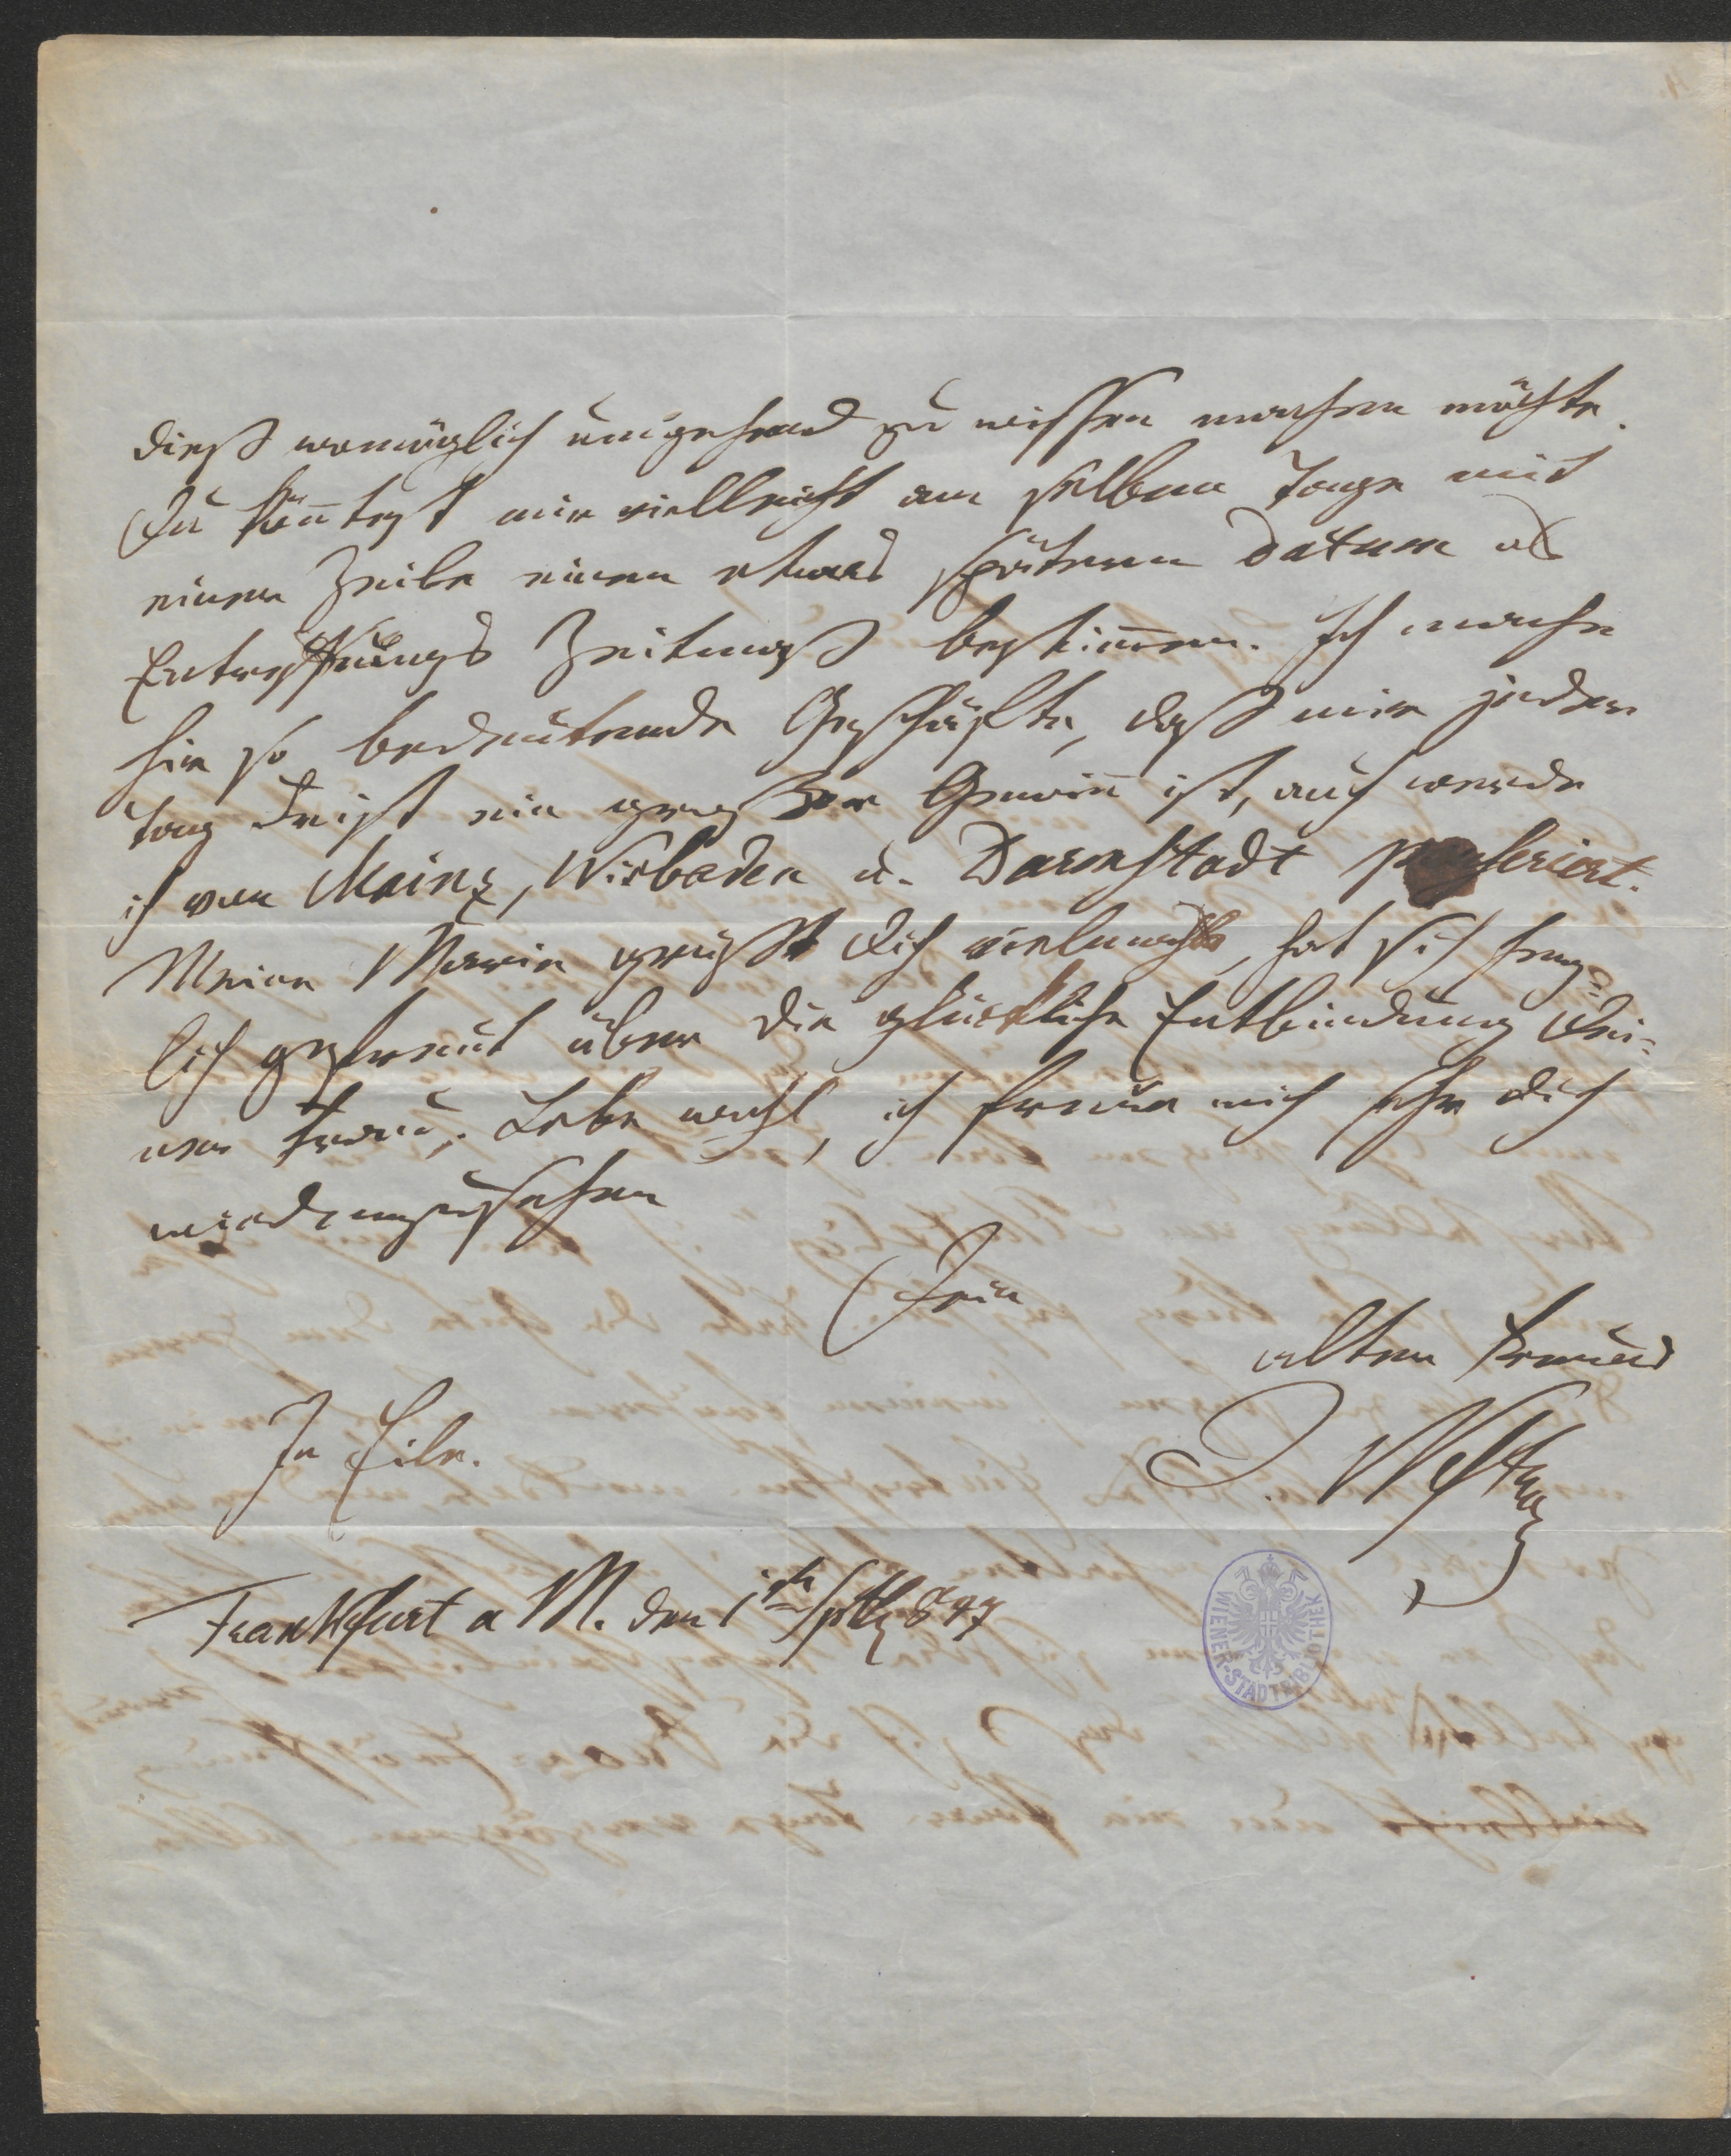 dieß womöglich umgehend zu wissen machen möchte.
Du kön̄test mir vielleicht am selben Tage mit
einer Zeile einen etwas spätern Datum als
Zeitmaß bestim̄en. Ich mache
hier so bedeutende Geschäfte, daß mir jeder
Tag Frist ein großer Gewin̄ ist, auch werde
ich von Mainz, Wisbaden u. Darmstadt
Meine Marie grüßt Dich vielmahls, hat sich herz=
lich gefreut über die glückliche Entbindung Dei=
ner Frau. Lebe wohl, ich freue mich sehr Dich
wiederzusehen
Dein
alter Freund
J. Nestroy
In Eile.
Frankfurt a M. den 1ten Septb 847
WIENER-STADTBIBLIOTHEK